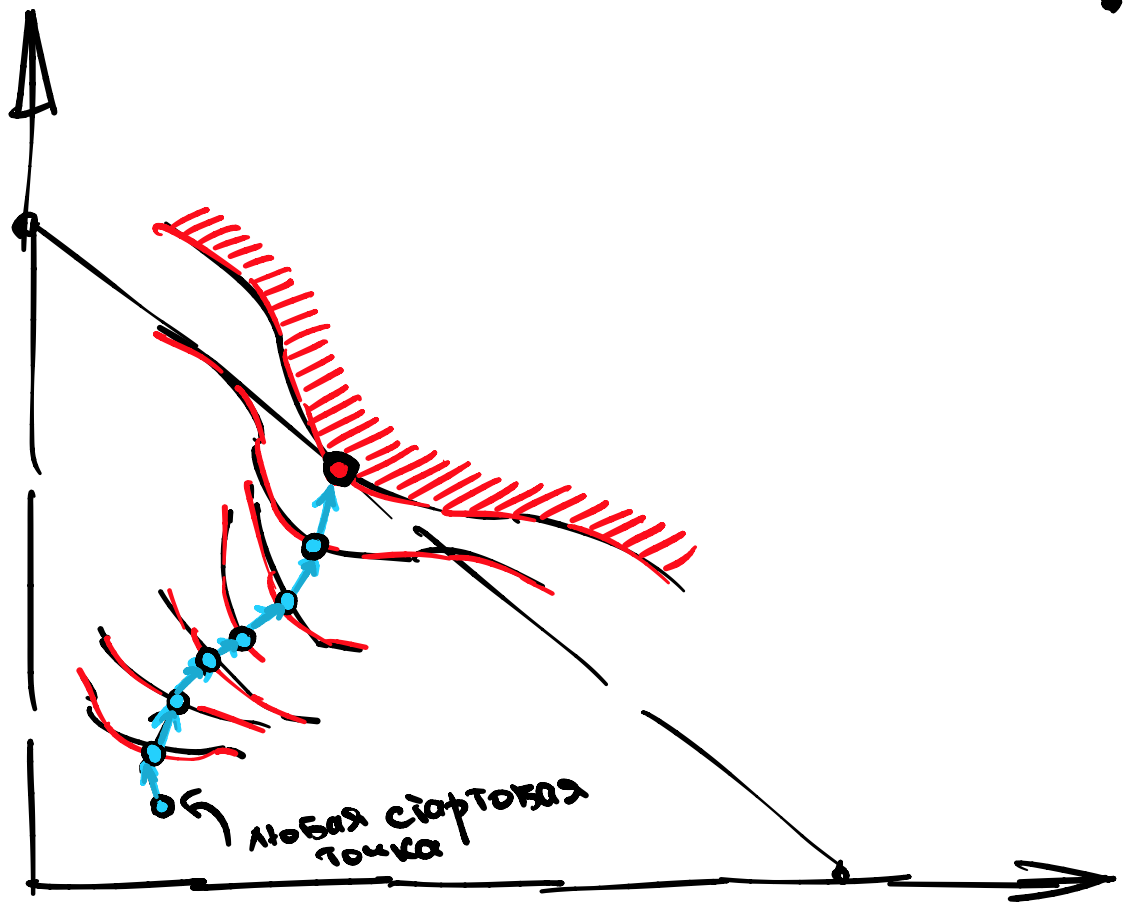 любая стартовая
точка